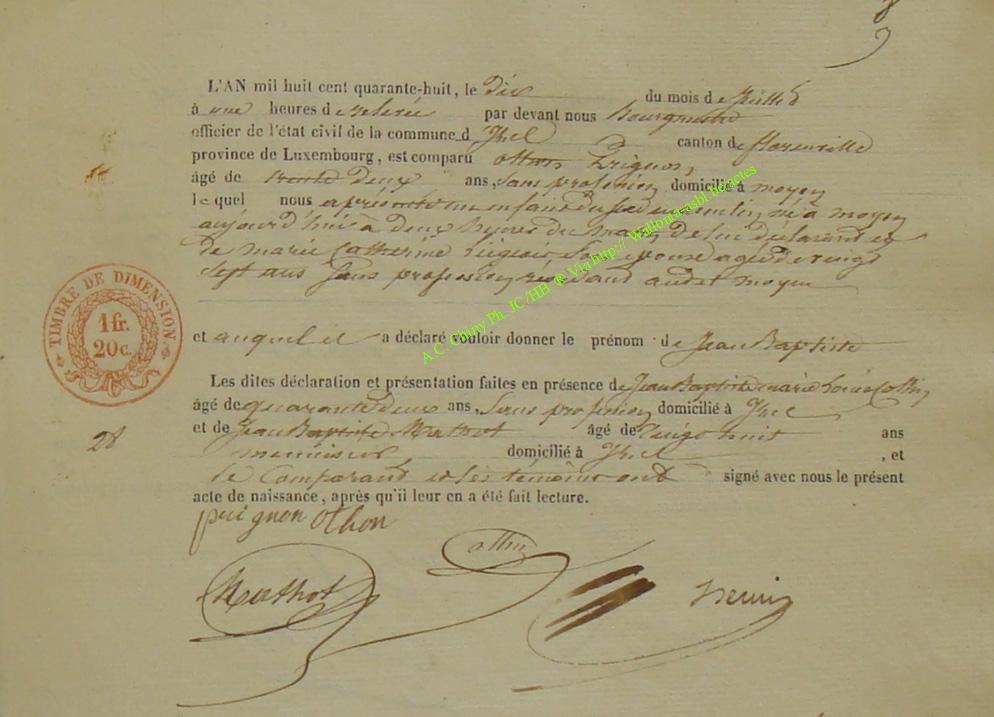 L'AN mil huit cent quarante-huit, le dix du mois de Juillet
à une heures de relevée par devant nous Bourgmestre
officier de l'état civil de la commune d Izel canton de florenville
province de Luxembourg, est comparu othon Prignon,
âgé de trente deux ans, sans profession, domicilié à moyen
lequel nous a présenté un enfant du sexe masculin, né à moyen
aujourd'hui à deux heures du matin, de lui déclarant et
de marie Catherine Liégeois, Son épouse agée de vingt
sept ans Sans profession, residant audit moyen
TIMBRE DE DIMENSION
1 fr.
20 c.
et auquel il a déclaré vouloir donner le prénom de Jean Baptiste
Les dites déclaration et présentation faites en présence de Jean Baptiste marie Louis
âgé de quarante deux ans, Sans profession, domicilié à Izel
et de Jean Baptiste Mathot âgé de vingt huit ans
28
menuisier domicilié à Izel, et
le Comparant et les témoins ont signé avec nous le présent
acte de naissance, après qu'il leur en a été fait lecture.
prignon Othon
Mathot
A.C. Chiny Ph. JC /HB & Via http:// Wallonia-asbl.be/actes